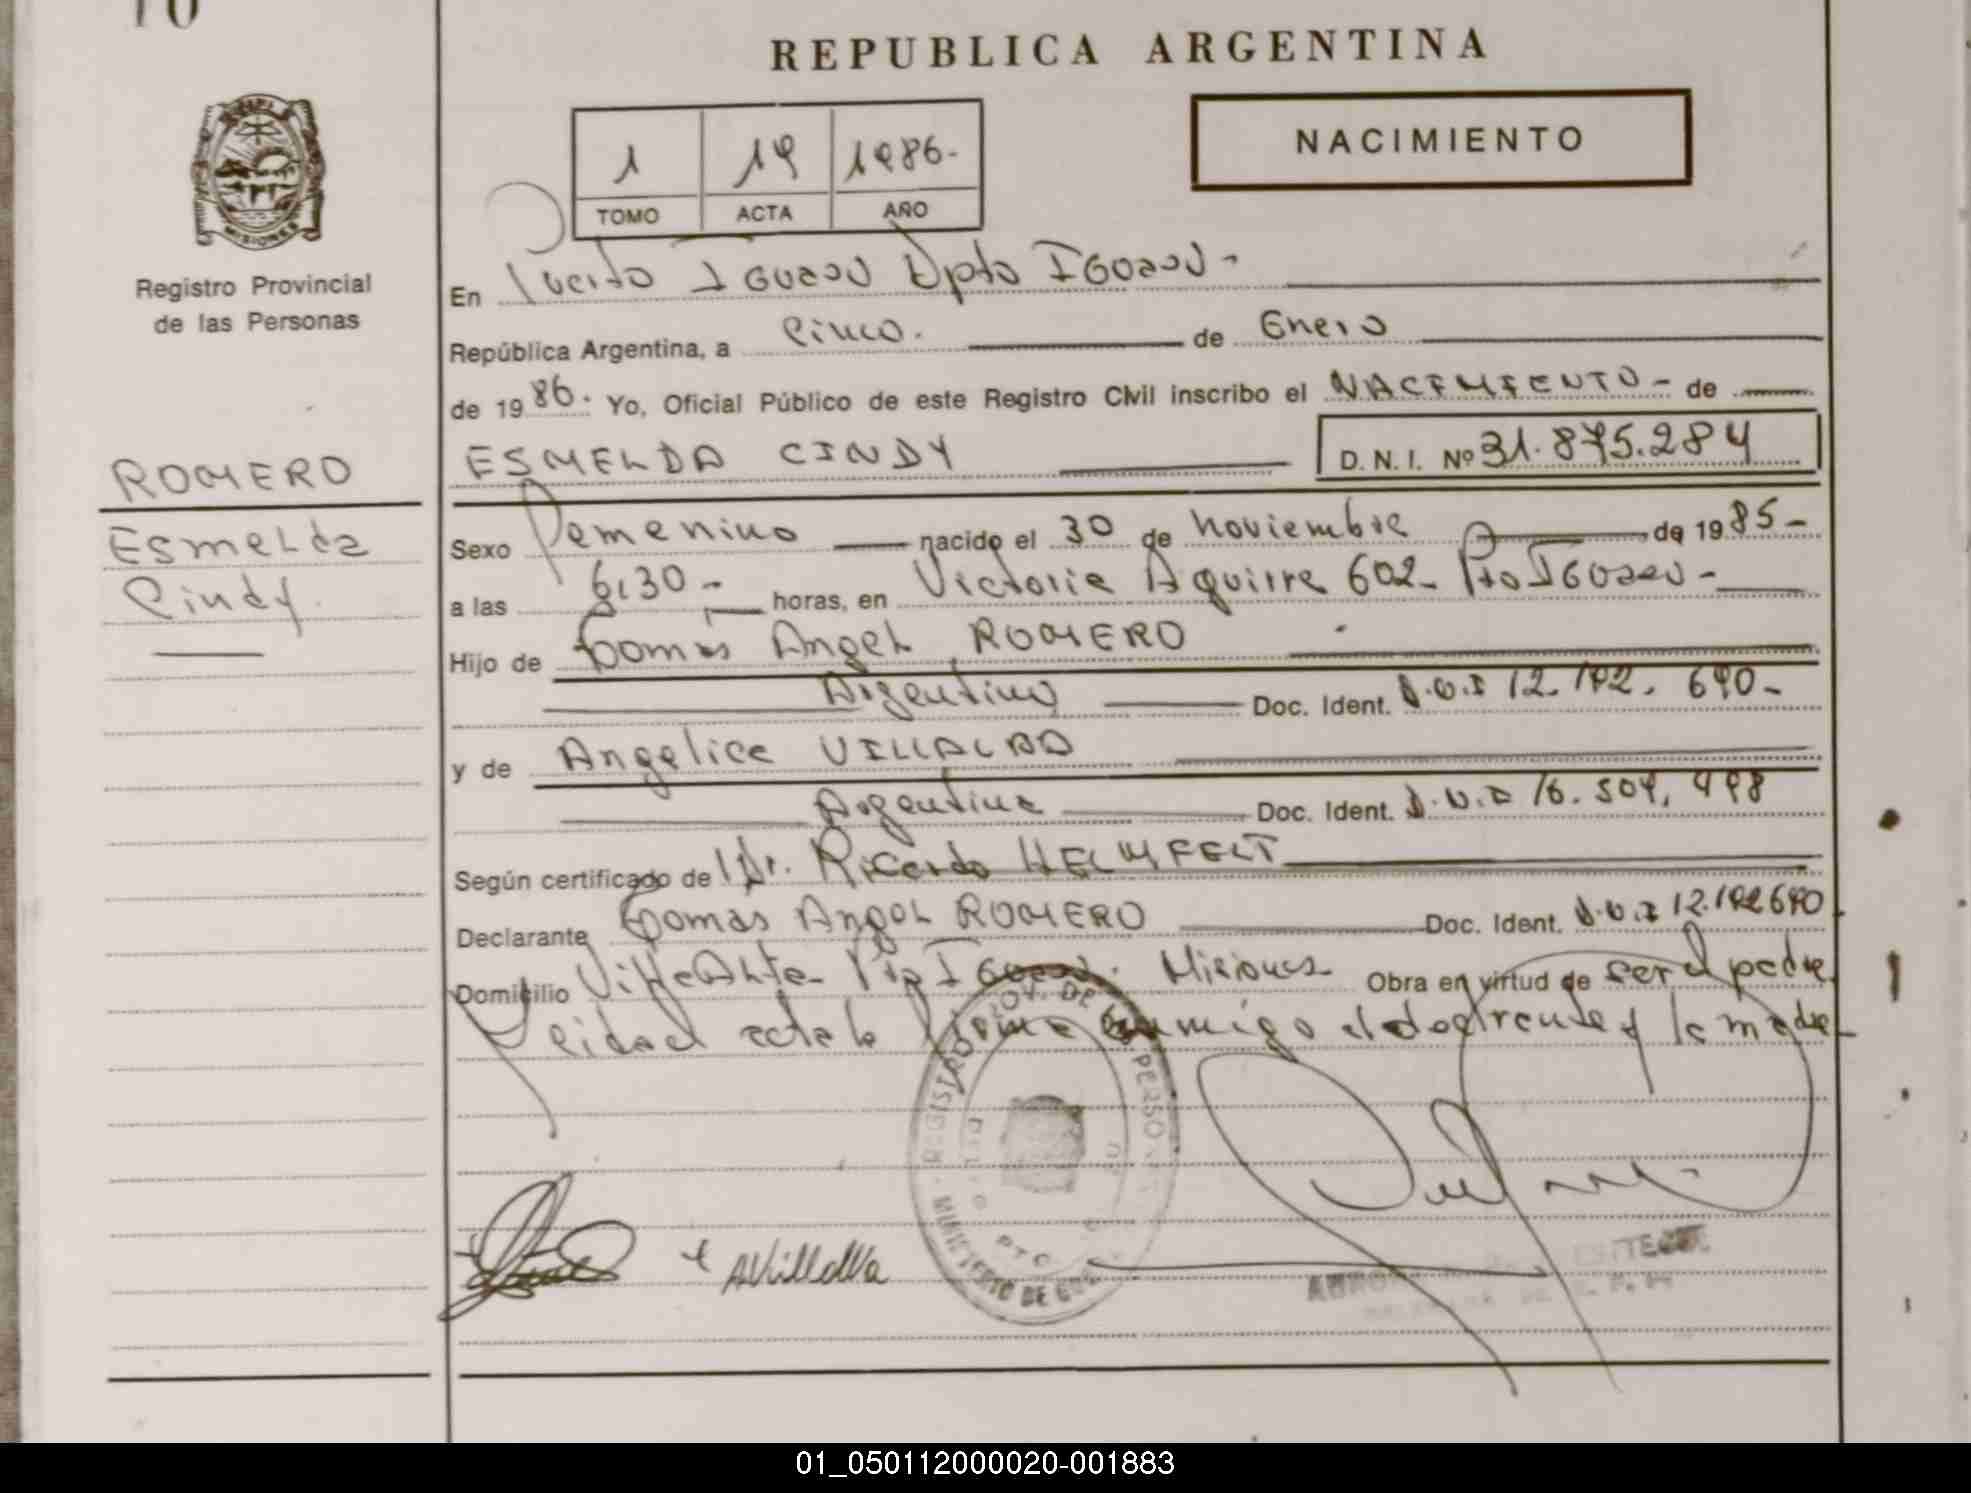 REPUBLICA ARGENTINA
NACIMIENTO
1 19 1986.-
TOMO ACTA AÑO
MISIONES
Registro Provincial
de las Personas
En Puerto Iguazu Dpto Iguazu-
República Argentina, a Cinco. de Enero
de 1986. Yo, Oficial Público de este Registro Civil inscribo el NACIMIENTO- de
ROMERO
Esmelda
Cindy.
ESMELDA CINDY D. N. I. Nº 31.875.284
Sexo Femenino nacido el 30 de Noviembre de 1985-
a las 6,30- horas, en Victoria Aguirre 602- Pto Iguazu-
Hijo de Tomás Angel ROMERO
Argentino Doc. Ident. D.N.I 12.192.690-
y de Angelica VILLALBA
Argentina Doc. Ident. D.N.I 16.504.498
Según certificado de Dr. Ricardo HELMFELT
Declarante Tomás Angel ROMERO Doc. Ident. D.N.I 12.192690
Domicilio Pto Iguazu. Misiones Obra en virtud de ser el padre
Leida el acta la firma conmigo el declarante y la madre
REGISTRO PROV. DE LAS PERSONAS
MINISTERIO DE GOB
PTO
AVillalba
01_050112000020-001883